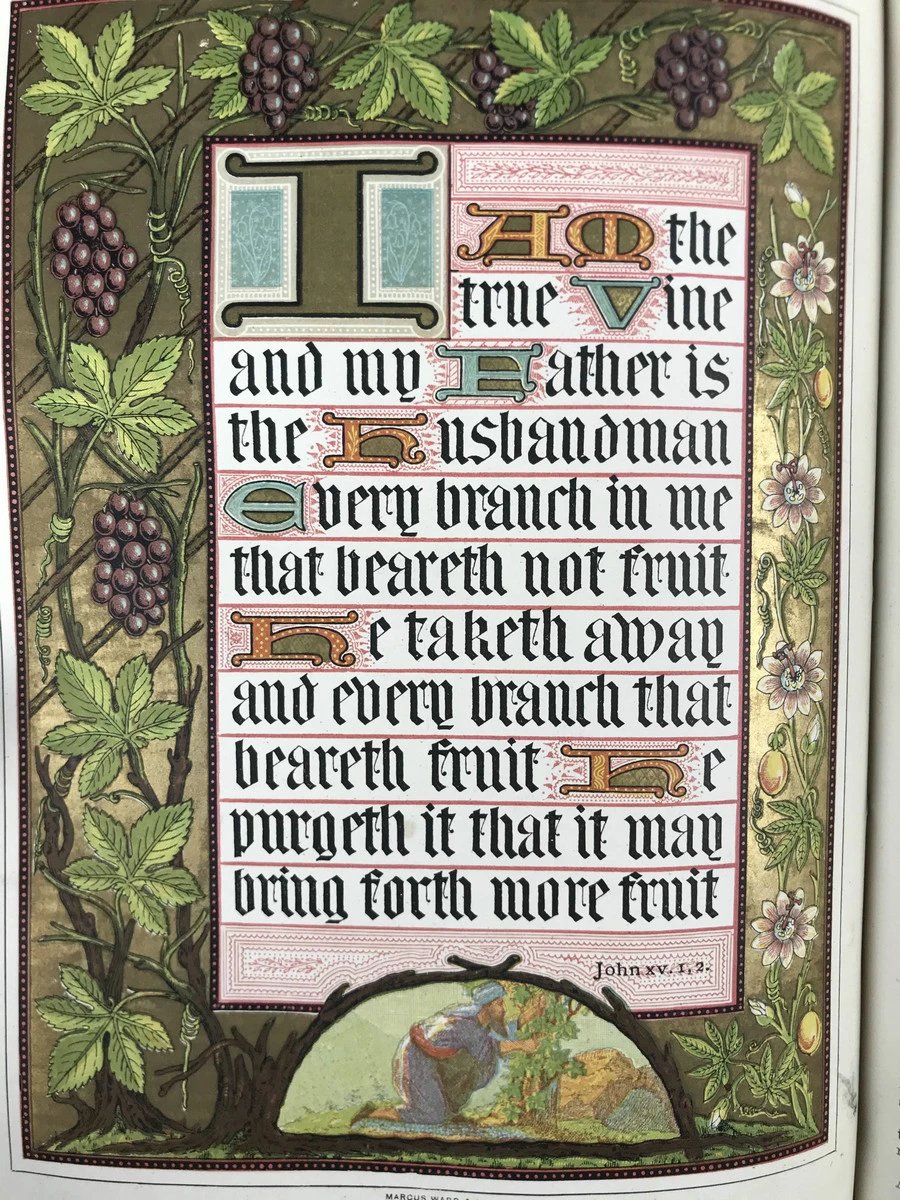 I AM the
true Vine
and my Father is
the Husbandman
Every branch in me
that beareth not fruit
He taketh away
and every branch that
beareth fruit He
purgeth it that it may
bring forth more fruit
John xv. 1, 2.
MARCUS WARD